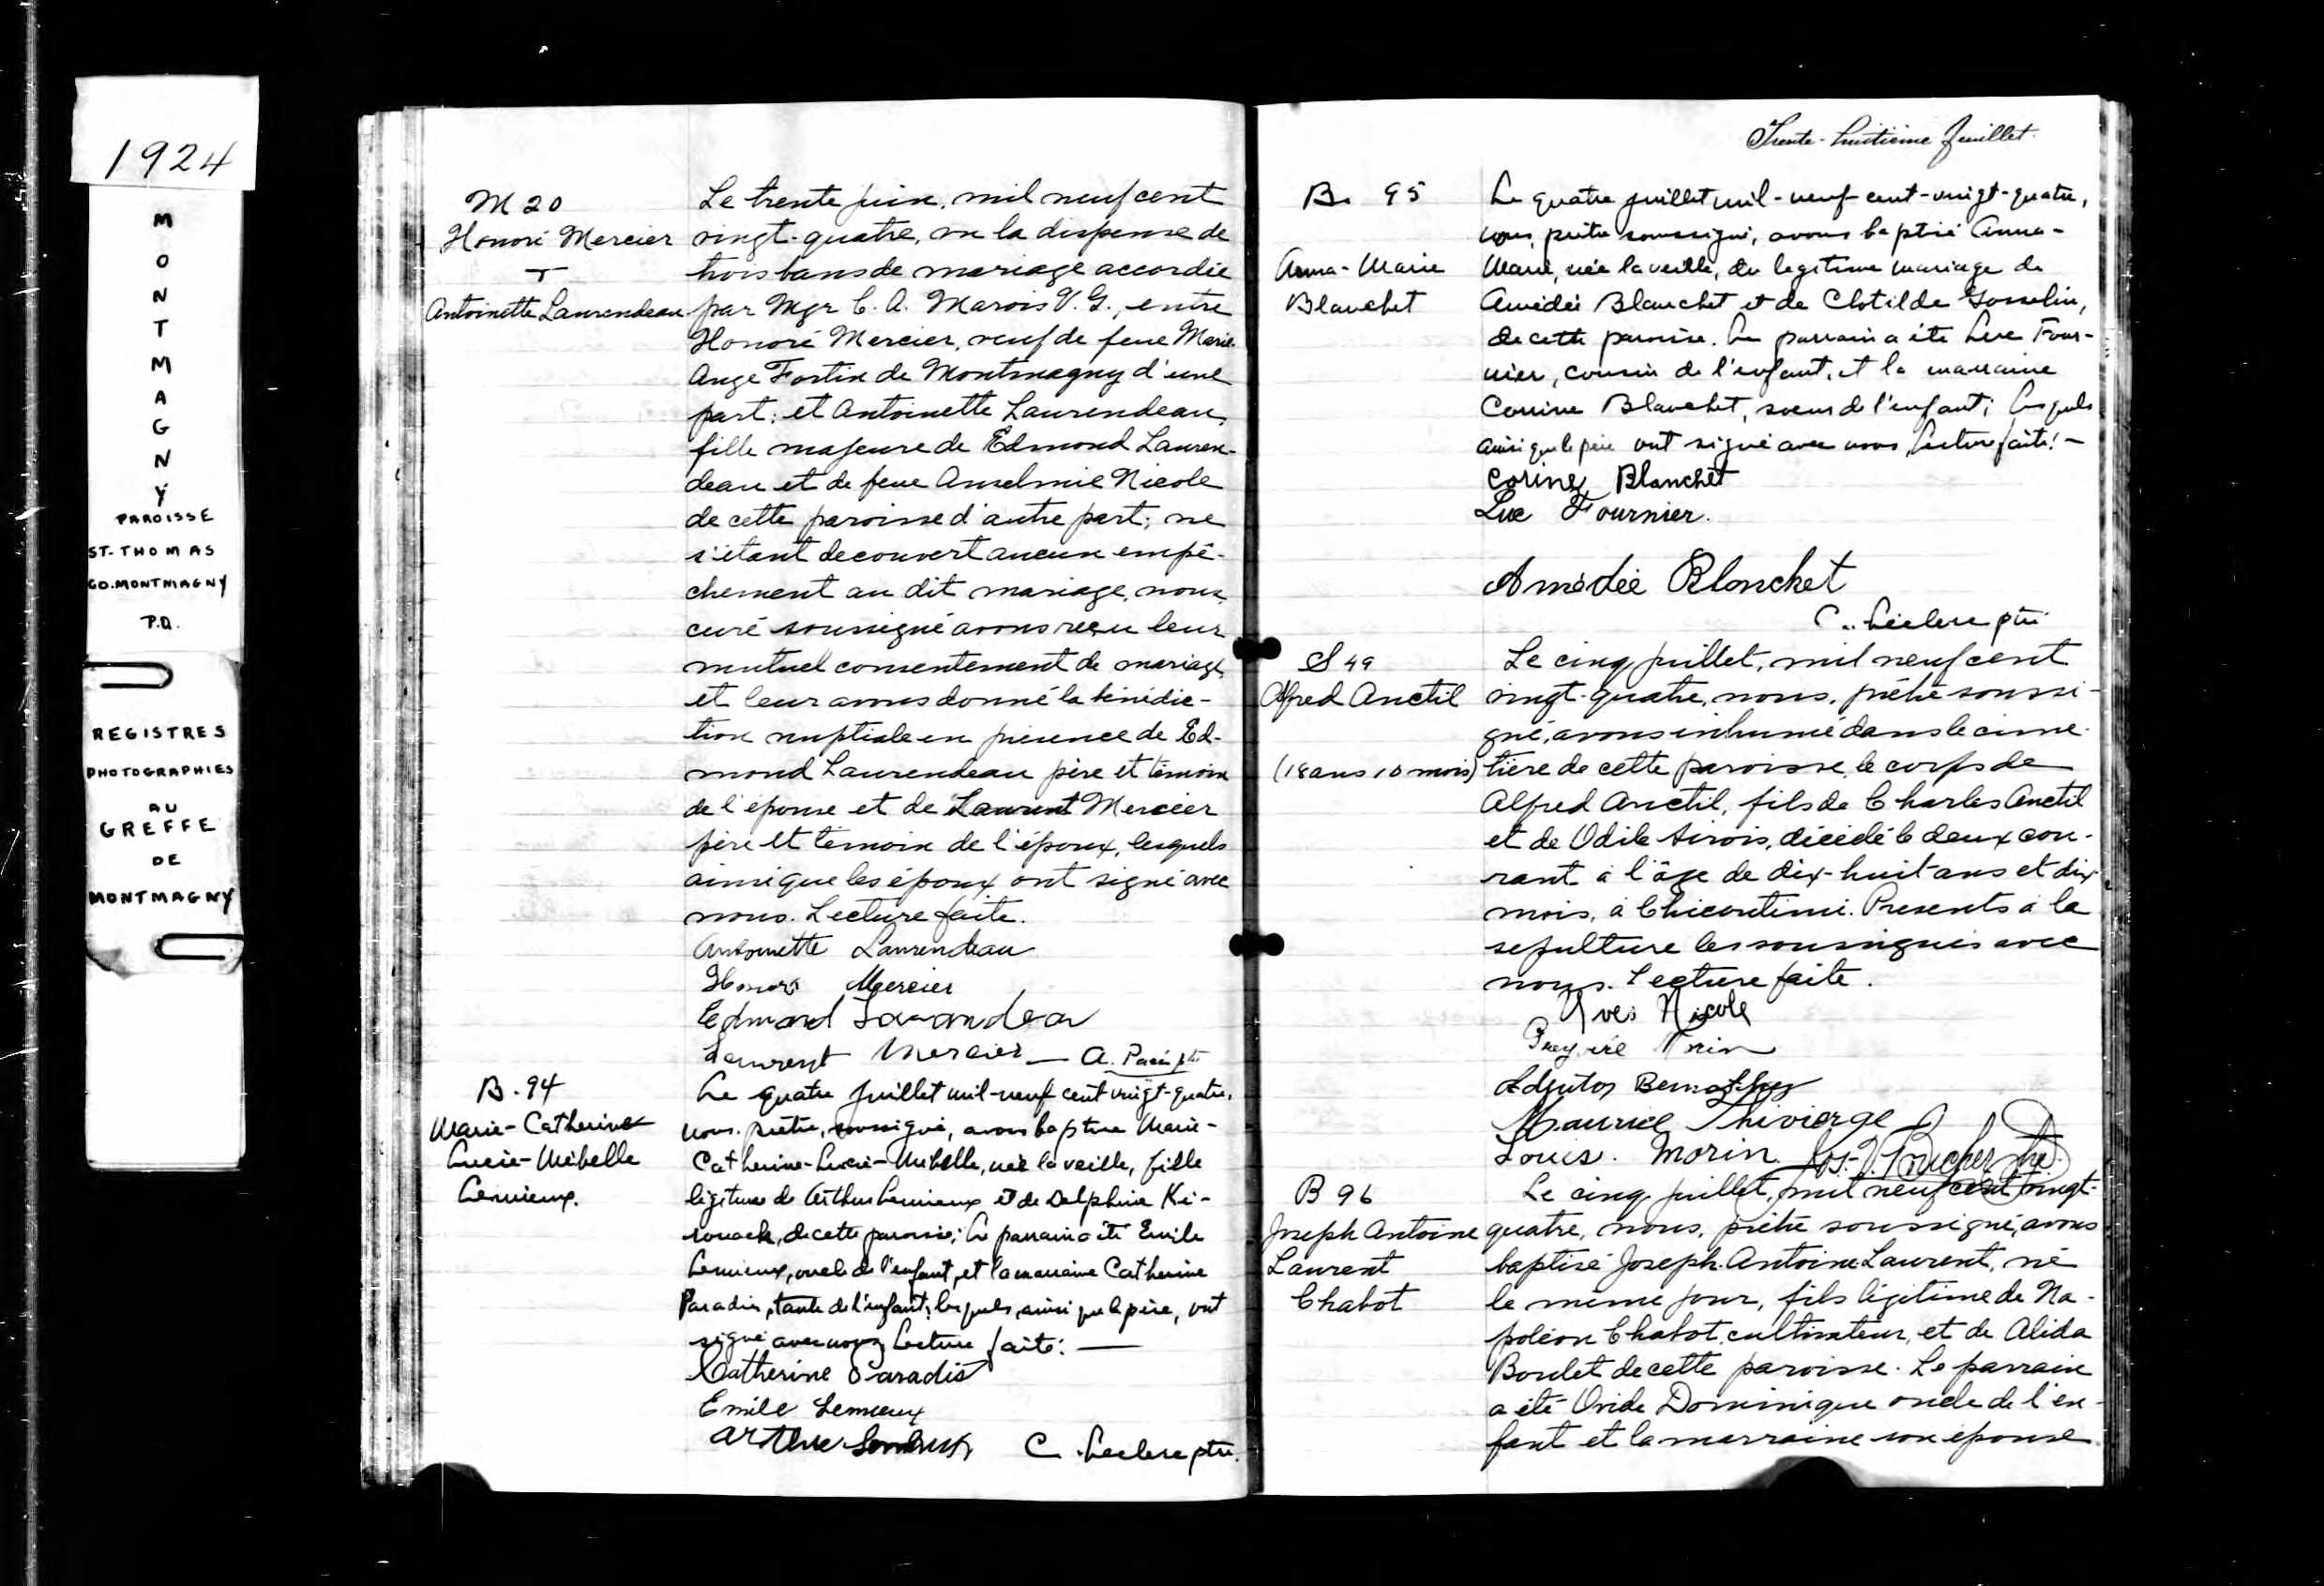 1924
MONTMAGNY
PAROISSE
ST-THOMAS
CO. MONTMAGNY
P.Q.
REGISTRES
PHOTOGRAPHIES
AU
GREFFE
DE
MONTMAGNY
M 20
Honoré Mercier
+
Antoinette Laurendeau
Le trente juin, mil neuf cent
vingt-quatre, vu la dispense de
trois bans de mariage accordée
par Mgr C. A. Marois V. G., entre
Honoré Mercier, veuf de feue Marie-
Ange Fortin de Montmagny d'une
part; et Antoinette Laurendeau,
fille majeure de Edmond Lauren-
deau et de feue Anselmie Nicole
de cette paroisse d'autre part; ne
s'étant decouvert aucun empê-
chement au dit mariage, nous,
curé soussigné avons reçu leur
mutuel consentement de mariage
et leur avons donné la bénédic-
tion nuptiale en présence de Ed-
mond Laurendeau père et témoin
de l'épouse et de Laurent Mercier
père et témoin de l'époux, lesquels
ainsi que les époux ont signé avec
nous. Lecture faite.
Antoinette Laurendeau
Honoré Mercier
Edmond
Laurent Mercier — A. ptre
B. 94
Marie-Catherine
Lucie-Mibelle
Lemieux.
Le quatre juillet mil-neuf cent vingt-quatre,
nous, prêtre, soussigné, avons baptisé Marie-
Catherine-Lucie-Mibelle, née la veille, fille
légitime de Arthur Lemieux et de Delphine Ki-
rouack, de cette paroisse; Le parrain a été Emile
Lemieux, oncle de l'enfant, et la marraine Catherine
Paradis, tante de l'enfant; lesquels, ainsi que le père, ont
signé avec nous, Lecture faite: —
Catherine Paradis
Emile Lemieux
Arthur C. Leclerc ptre.
Trente-huitième feuillet.
B. 95
Anna-Marie
Blanchet
Le quatre juillet mil-neuf-cent-vingt-quatre,
nous, prêtre soussigné, avons baptisé Anna-
Marie, née la veille, du legitime mariage de
Amédée Blanchet et de Clotilde Gosselin,
de cette paroisse. Le parrain a été Luc Four-
nier, cousin de l'enfant, et la marraine
Corrine Blanchet, soeur de l'enfant; lesquels
ainsi que le père ont signé avec nous, lecture faite: —
Corine Blanchet
Luc Fournier.
Amédée Blanchet
C. Leclerc ptre
S 49
Alfred Anctil
(18 ans 10 mois)
Le cinq juillet, mil neuf cent
vingt-quatre, nous, prêtre soussi-
gné, avons inhumé dans le cime-
tière de cette paroisse, le corps de
Alfred Anctil, fils de Charles Anctil
et de Odile Sirois, décédé le deux cou-
rant à l'âge de dix-huit ans et dix
mois, à Chicoutimi. Presents à la
sepulture les soussignés avec
nous. Lecture faite.
Yves Nicole
Morin
Adjutor
Maurice Thivierge
Louis Morin. Jos. D. Boucher ptre.
B 96
Joseph Antoine
Laurent
Chabot
Le cinq juillet, mil neuf cent vingt-
quatre, nous, prêtre soussigné, avons
baptisé Joseph-Antoine-Laurent, né
le même jour, fils légitime de Na-
poléon Chabot, cultivateur, et de Alida
Boulet de cette paroisse. Le parrain
a été Ovide Dominique oncle de l'en-
fant et la marraine son épouse